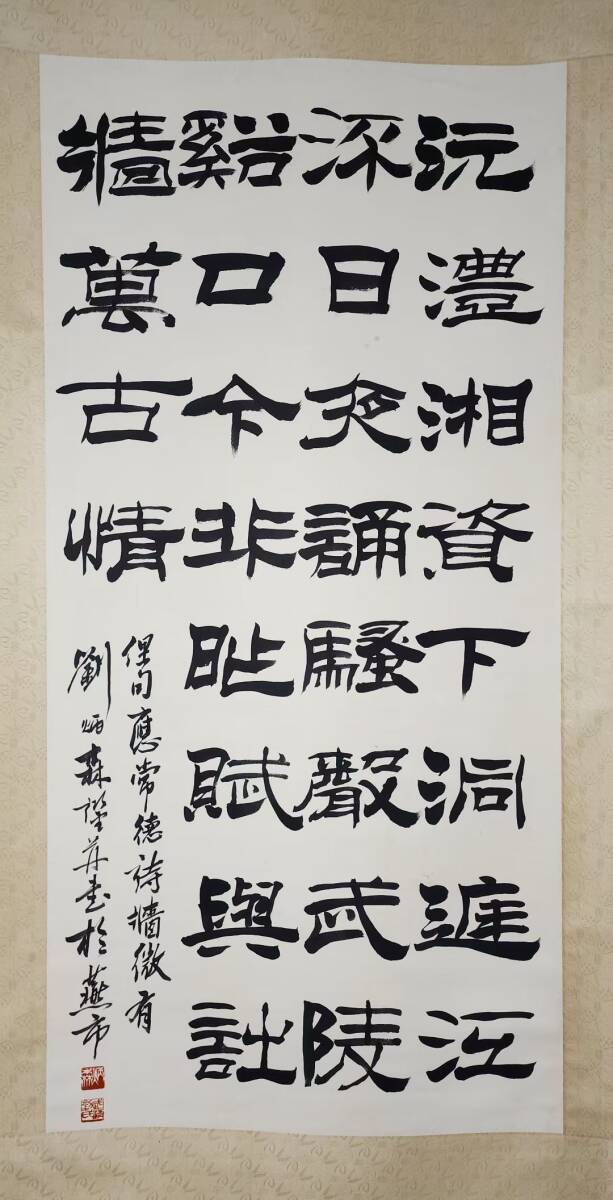 沅澧湘資下洞庭江
深日夜誦騷聲武陵
谿口今非昨賦與詩
牆萬古情
俚句應常德詩牆徵有
劉炳森并書於燕市